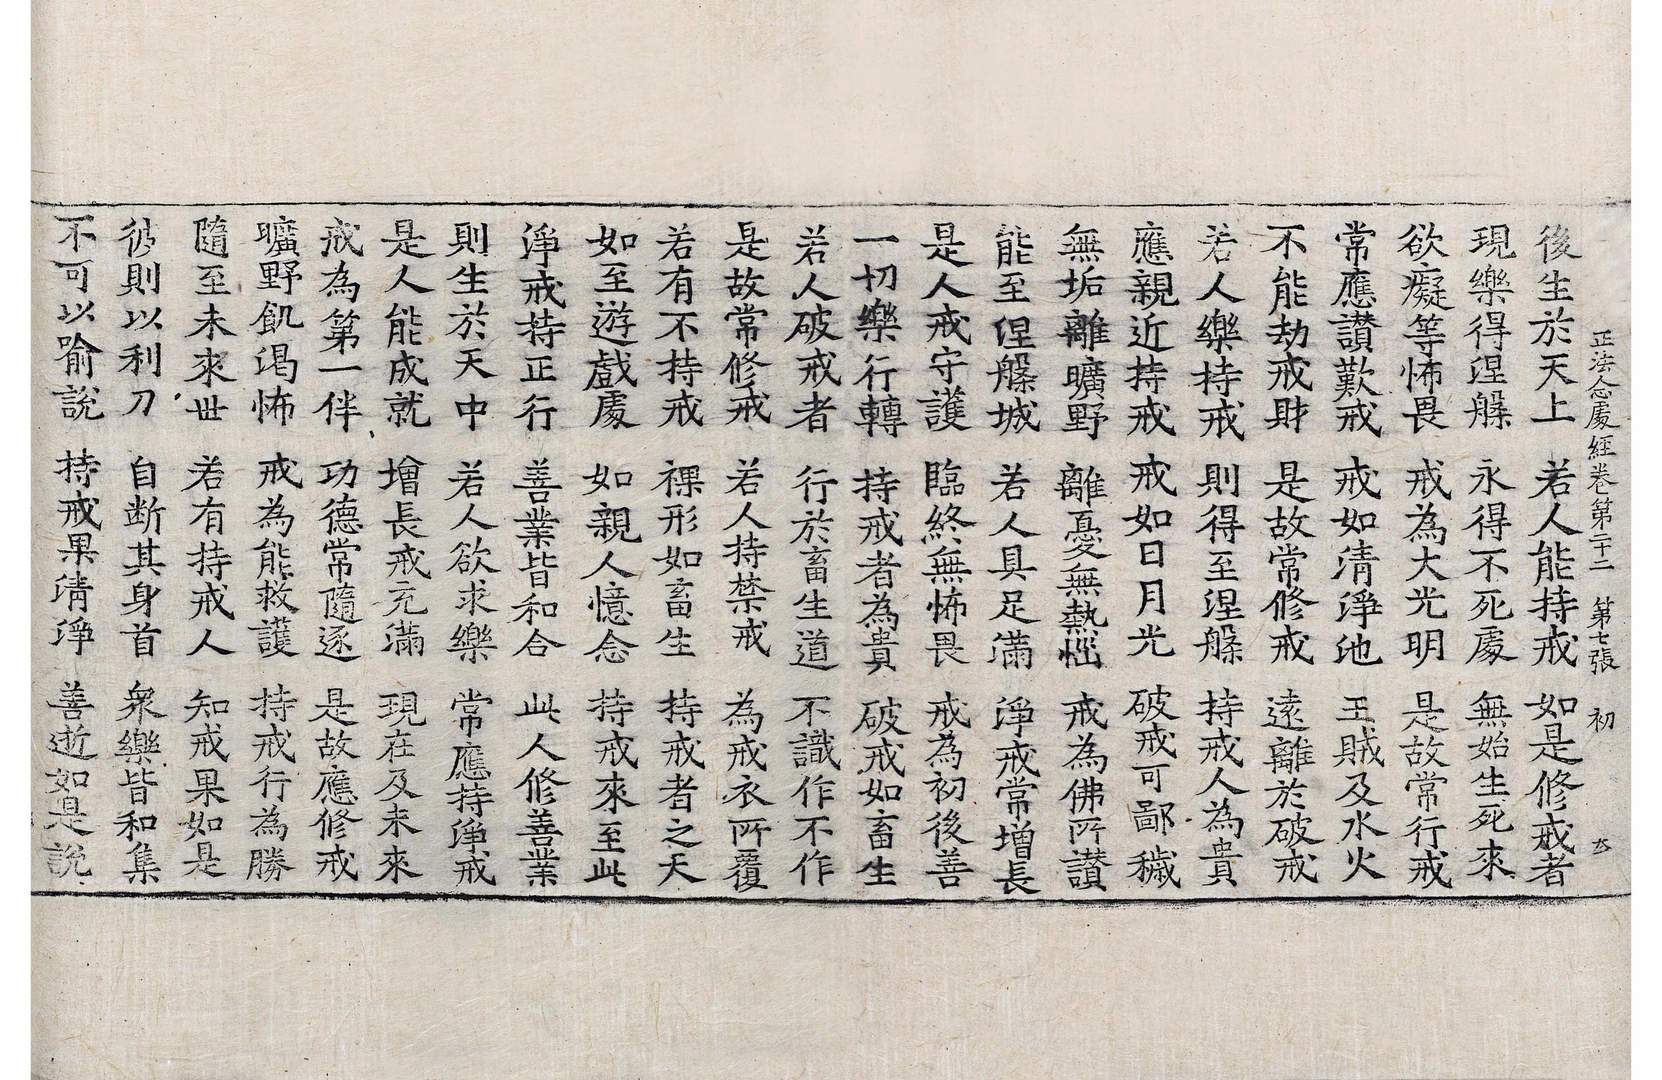 正法念處經卷第二十二 第七張 初
後生於天上 若人能持戒 如是修戒者
現樂得涅槃 永得不死處 無始生死來
欲癡等怖畏 戒為大光明 是故常行戒
常應讃歎戒 戒如清淨池 王賊及水火
不能劫戒財 是故常修戒 遠離於破戒
若人樂持戒 則得至涅槃 持戒人為貴
應親近持戒 戒如日月光 破戒可鄙穢
無垢離曠野 離憂無熱惱 戒為佛所讃
能至涅槃城 若人具足滿 淨戒常增長
是人戒守護 臨終無怖畏 戒為初後善
一切樂行轉 持戒者為貴 破戒如畜生
若人破戒者 行於畜生道 不識作不作
是故常修戒 若人持禁戒 為戒衣所覆
若有不持戒 裸形如畜生 持戒者之天
如至遊戲處 如親人憶念 持戒來至此
淨戒持正行 善業皆和合 此人修善業
則生於天中 若人欲求樂 常應持淨戒
是人能成就 增長戒充滿 現在及未來
戒為第一伴 功德常隨逐 是故應修戒
曠野飢渴怖 戒為能救護 持戒行為勝
隨至未來世 若有持戒人 知戒果如是
彼則以利刀 自断其身首 衆樂皆和集
不可以喻說 持戒果清淨 善逝如是說